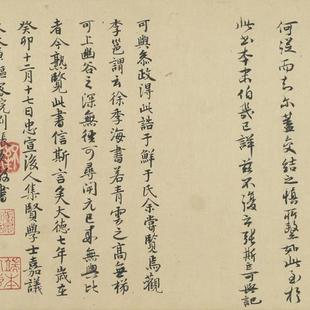 何從而知尔蓋交結之慎所鑒如此至於
此書本末伯幾已詳茲不復云張斯立可與記
可與參政得此誥于鮮于氏余嘗賢焉觀
李邕謂云徐季海書若青雲之高無梯
可上幽谷之深無徑可尋開元已來無與比
者今熟覽此書信斯言矣大德七年歲在
癸卯十二月十七日忠宣後人集賢學士嘉議
樞密院判張書